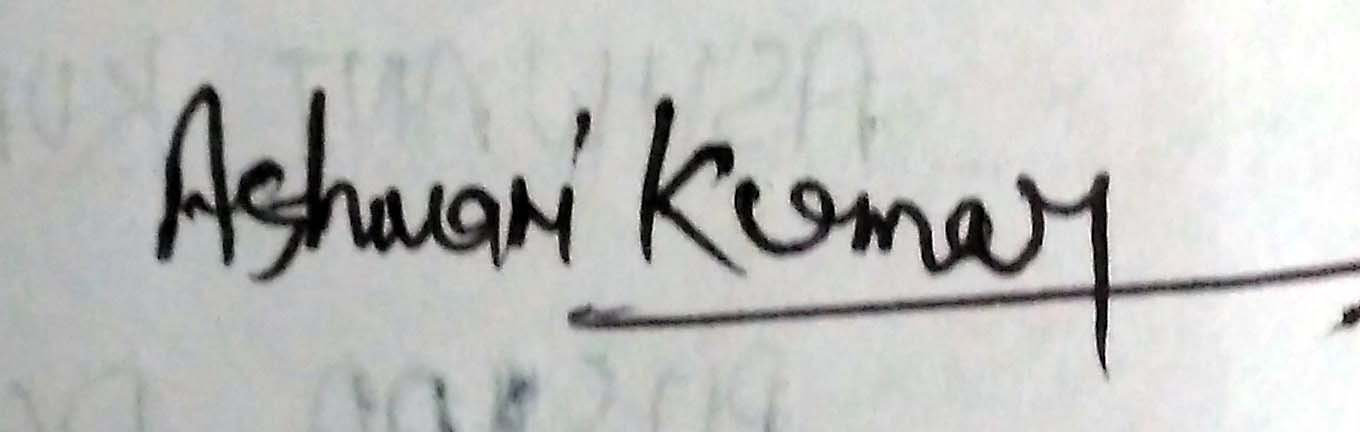 Ashwani Kumar